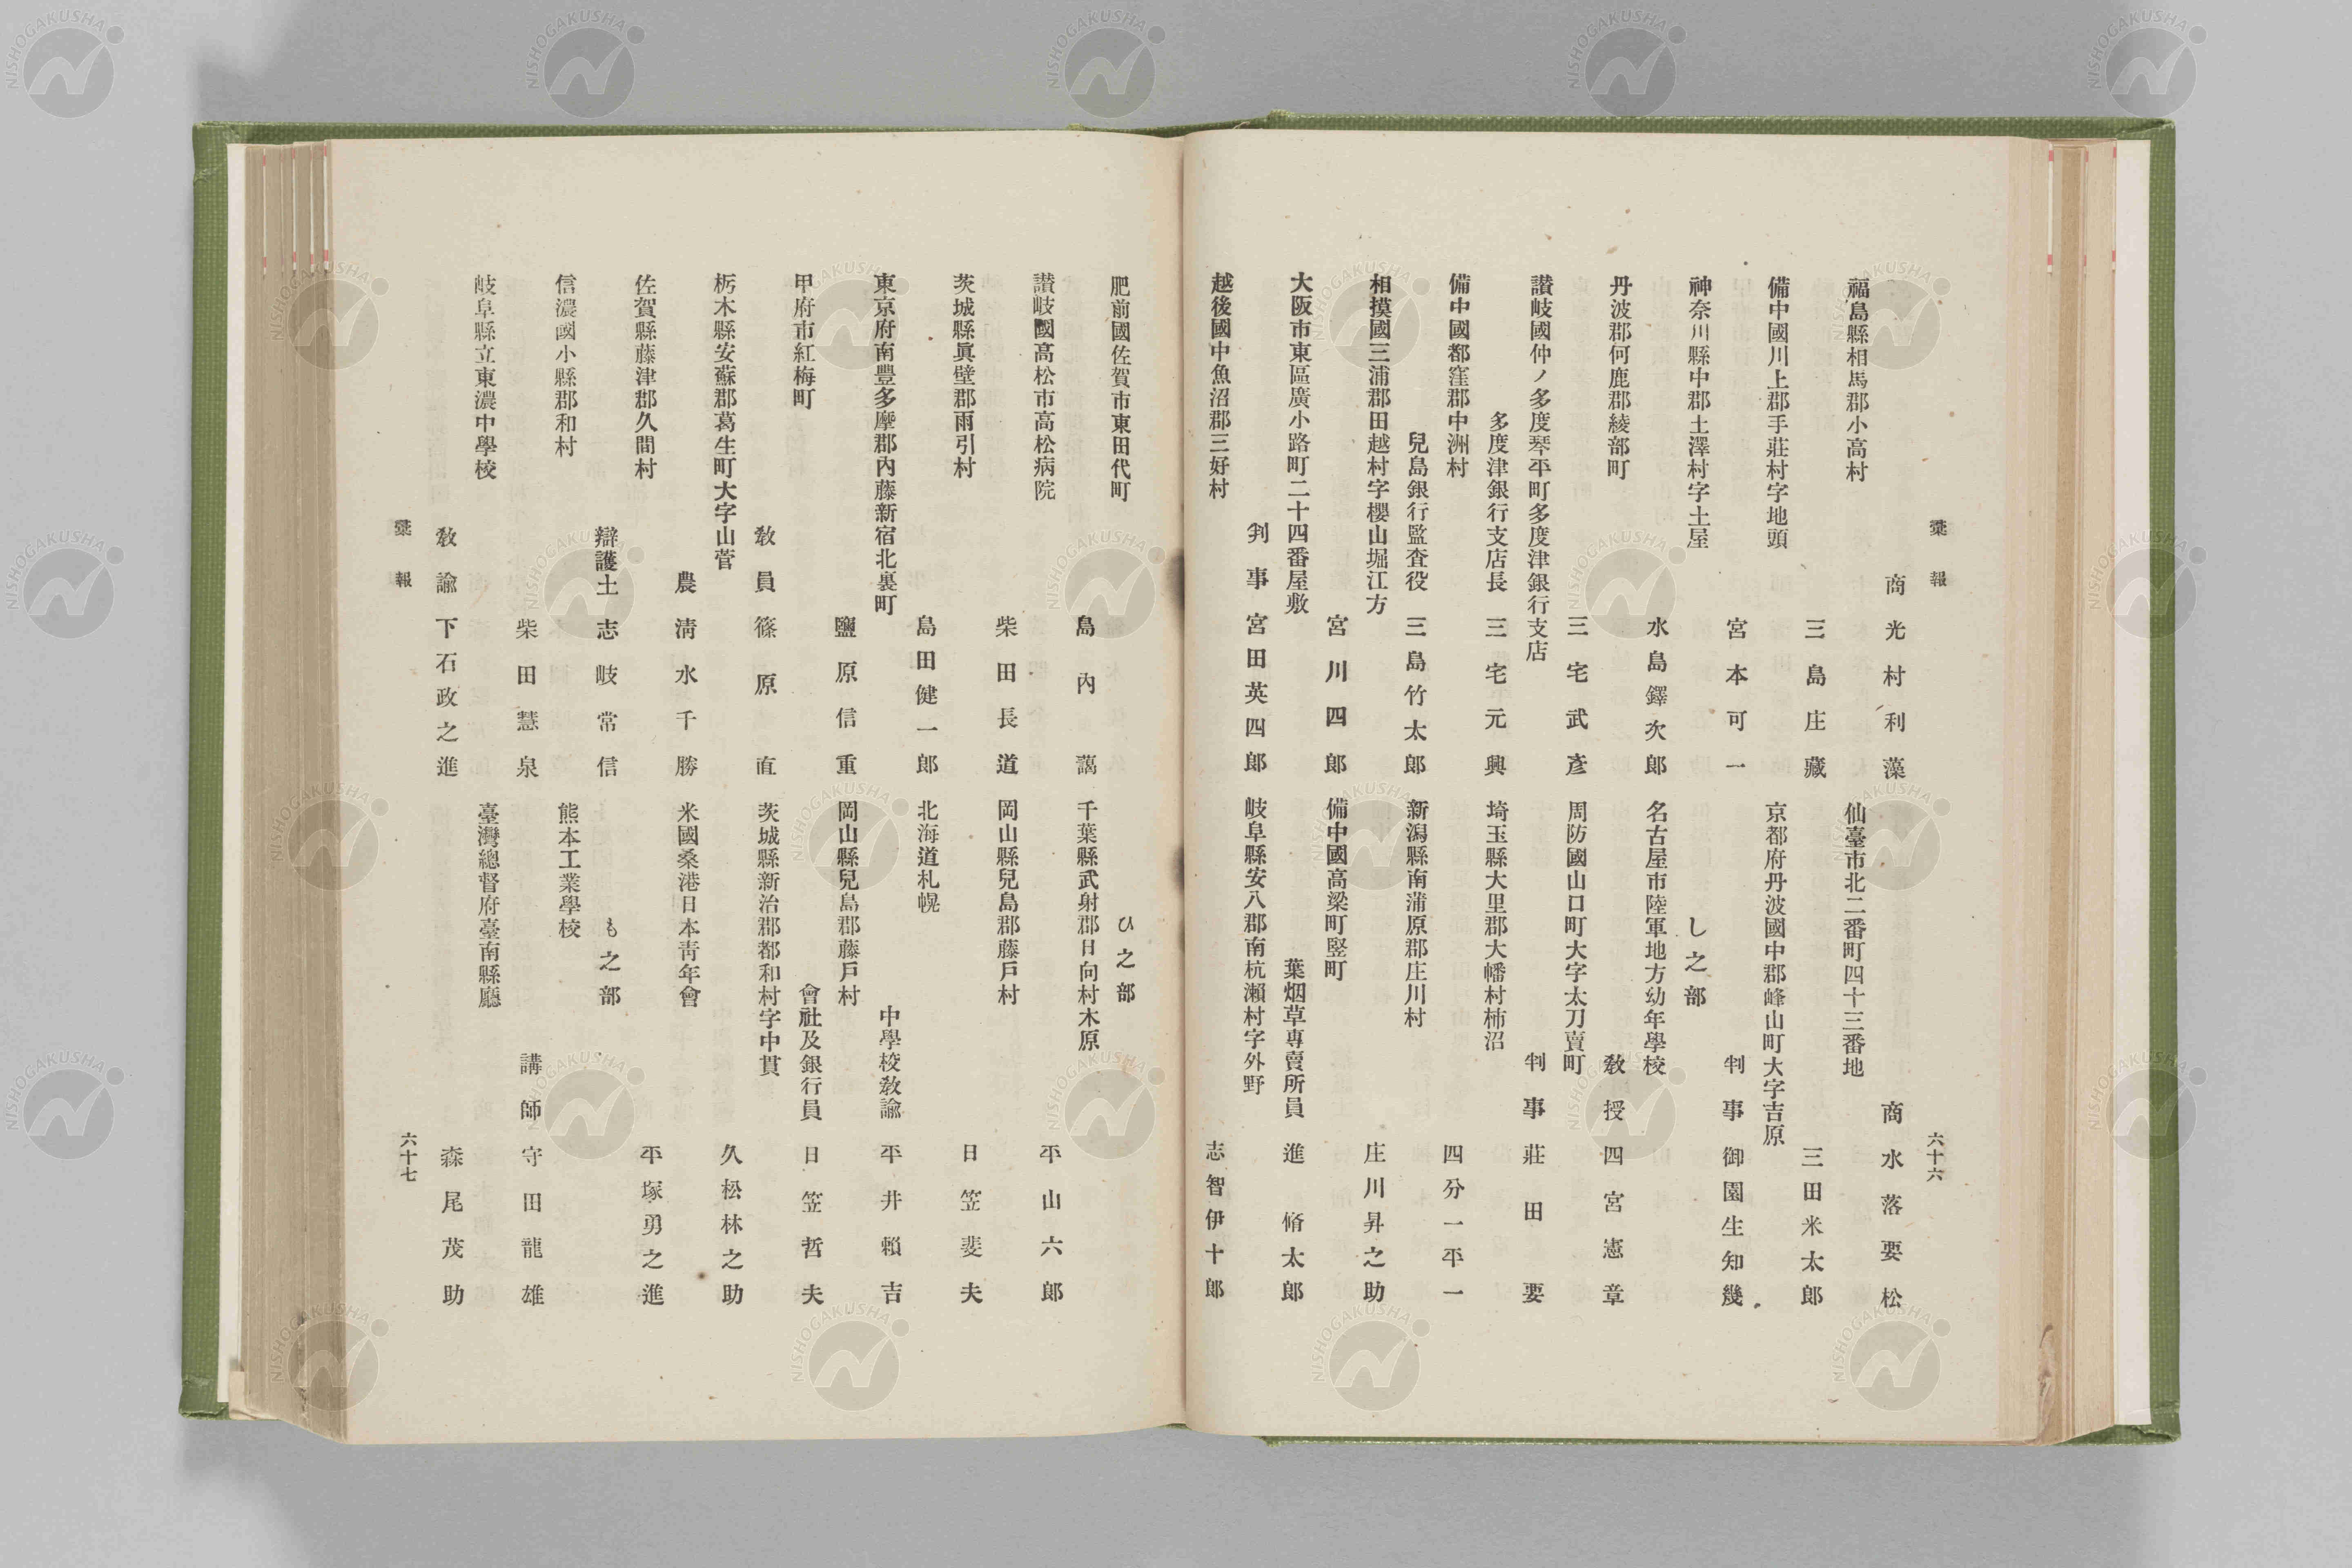 彙報
六十六
商 光村利藻
福島縣相馬郡小高村
三島庄藏
備中國川上郡手莊村字地頭
宮本可一
神奈川縣中郡土澤村字土屋
水島鐸次郎
丹波郡何鹿郡綾部町
三宅武彥
讃岐國仲ノ多度琴平町多度津銀行支店
多度津銀行支店長 三宅元興
備中國都窪郡中洲村
兒島銀行監査役 三島竹太郎
相摸國三浦郡田越村字櫻山堀江方
宮川四郎
大阪市東區廣小路町二十四番屋敷
判事 宮田英四郎
越後國中魚沼郡三好村
商 水落要松
仙臺市北二番町四十三番地
三田米太郎
京都府丹波國中郡峰山町大字吉原
判事 御園生知幾
し之部
名古屋市陸軍地方幼年學校
敎授 四宮憲章
周防國山口町大字太刀賣町
判事 莊田要
埼玉縣大里郡大幡村柿沼
四分一平一
新潟縣南蒲原郡庄川村
庄川昇之助
備中國高梁町竪町
葉烟草専賣所員 進脩太郎
岐阜縣安八郡南杭瀬村字外野
志智伊十郎
肥前國佐賀市東田代町
島內藹
讃岐國高松市高松病院
柴田長道
茨城縣眞壁郡雨引村
島田健一郎
東京府南豐多摩郡內藤新宿北裏町
鹽原信重
甲府市紅梅町
敎員 篠原直
栃木縣安蘇郡葛生町大字山菅
農 淸水千勝
佐賀縣藤津郡久間村
辯護士 志岐常信
信濃國小縣郡和村
柴田慧泉
岐阜縣立東濃中學校
敎諭 下石政之進
ひ之部
千葉縣武射郡日向村木原
平山六郎
岡山縣兒島郡藤戸村
日笠斐夫
北海道札幌
中學校敎諭 平井賴吉
岡山縣兒島郡藤戸村
會社及銀行員 日笠哲夫
茨城縣新治郡都和村字中貫
久松林之助
米國桑港日本靑年會
平塚勇之進
も之部
熊本工業學校
講師 守田龍雄
臺灣總督府臺南縣廳
森尾茂助
彙報
六十七
NISHOGAKUSHA